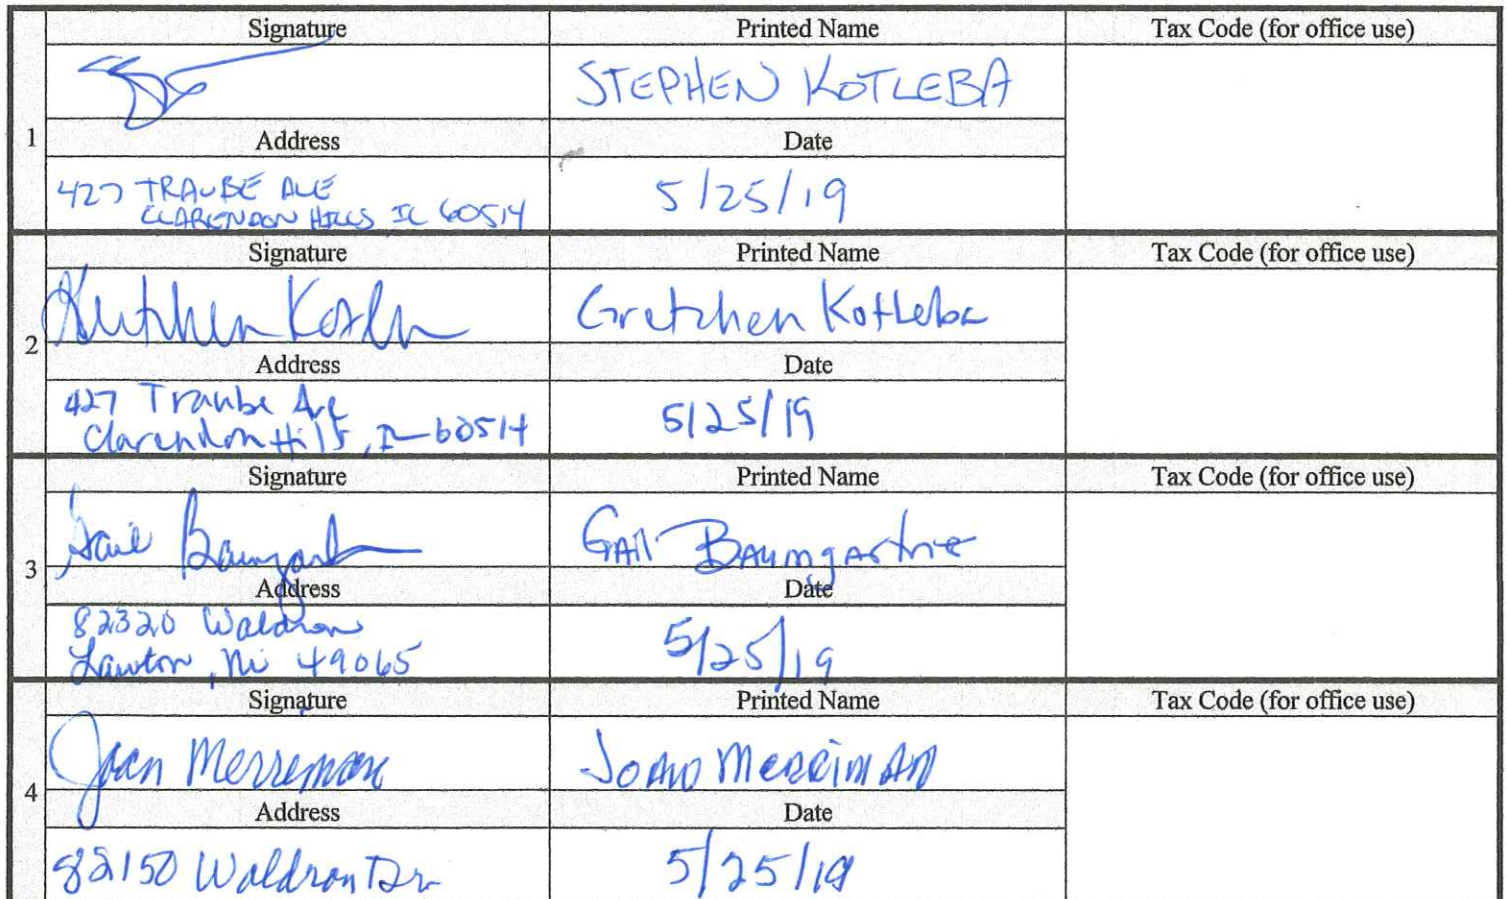 Signature Printed Name Tax Code (for office use)
STEPHEN KOTLEBA
1
Address Date
427 TRAUBE AVE 5/25/19
CLARENDON HILLS IL 60514
Signature Printed Name Tax Code (for office use)
Gretchen Kotleba
2
Address Date
427 Traube Ave 5/25/19
Clarendon Hills, IL 60514
Signature Printed Name Tax Code (for office use)
Gail Baumgart GAil BAumgArtner
3
Address Date
82320 Waldron 5/25/19
Lawton, Mi 49065
Signature Printed Name Tax Code (for office use)
Joan Merriman JOAN MERRIMAN
4
Address Date
82150 Waldron Dr 5/25/19